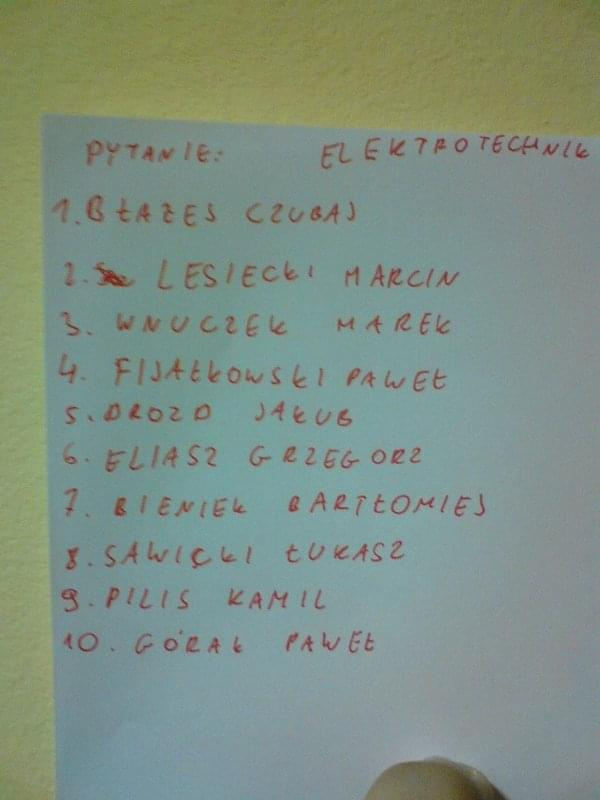 PYTANIE: ELEKTROTECHNIK
1. BŁAŻEJ CZUBAJ
2. LESIECKI MARCIN
3. WNUCZEK MAREK
4. FIJAŁKOWSKI PAWEŁ
5. DROZD JAKUB
6. ELIASZ GRZEGORZ
7. BIENIEK BARTŁOMIEJ
8. SAWICKI ŁUKASZ
9. PILIS KAMIL
10. GÓRAŁ PAWEŁ